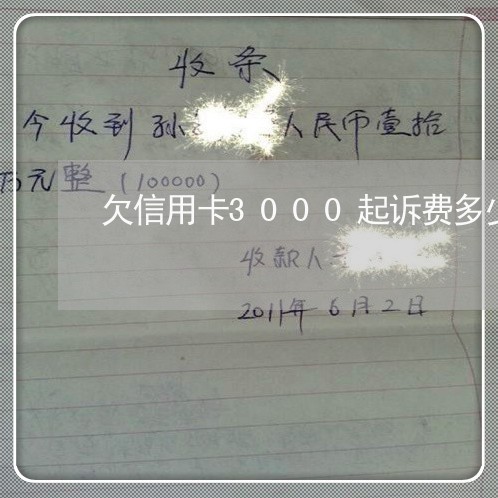 收条
今收到孙 人民币壹拾
万元整（100000）
欠信用卡3000起诉费多少
收款人
2011年6月2日